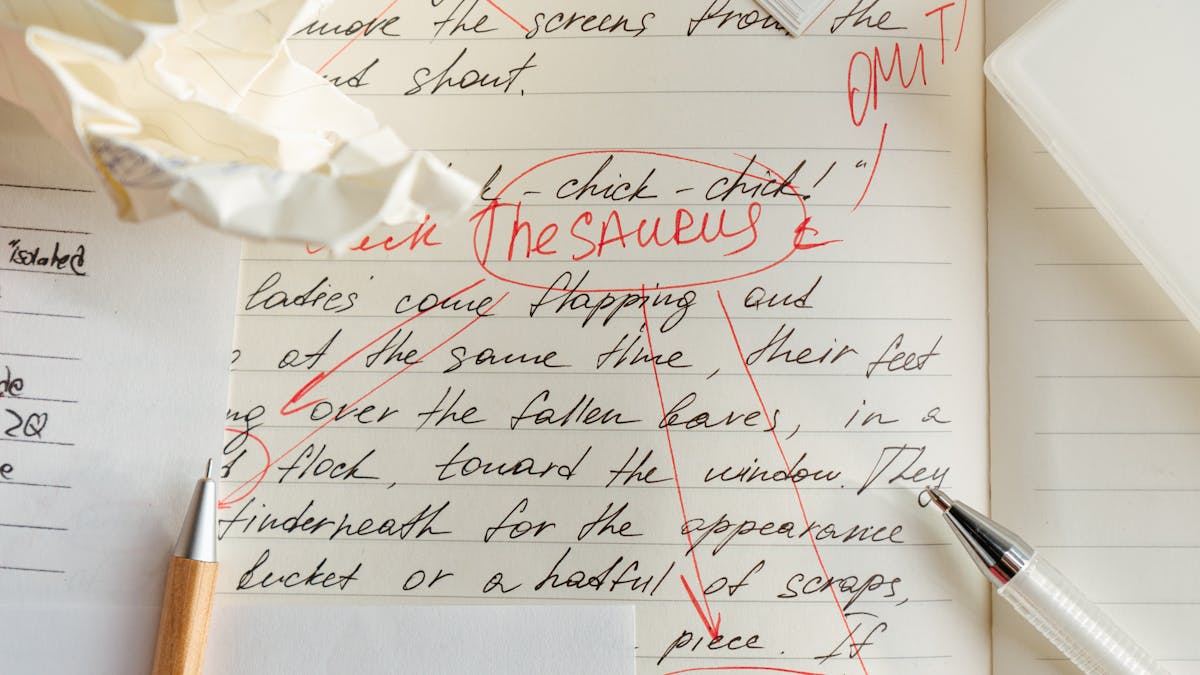 move the screens from the
and shout.
OMIT
- chick - chick!"
check Thesaurus
ladies come flapping and
at the same time, their feet
over the fallen leaves, in a
flock, toward the window. They
underneath for the appearance
bucket or a hatful of scraps,
piece. If
"isolated
2Q